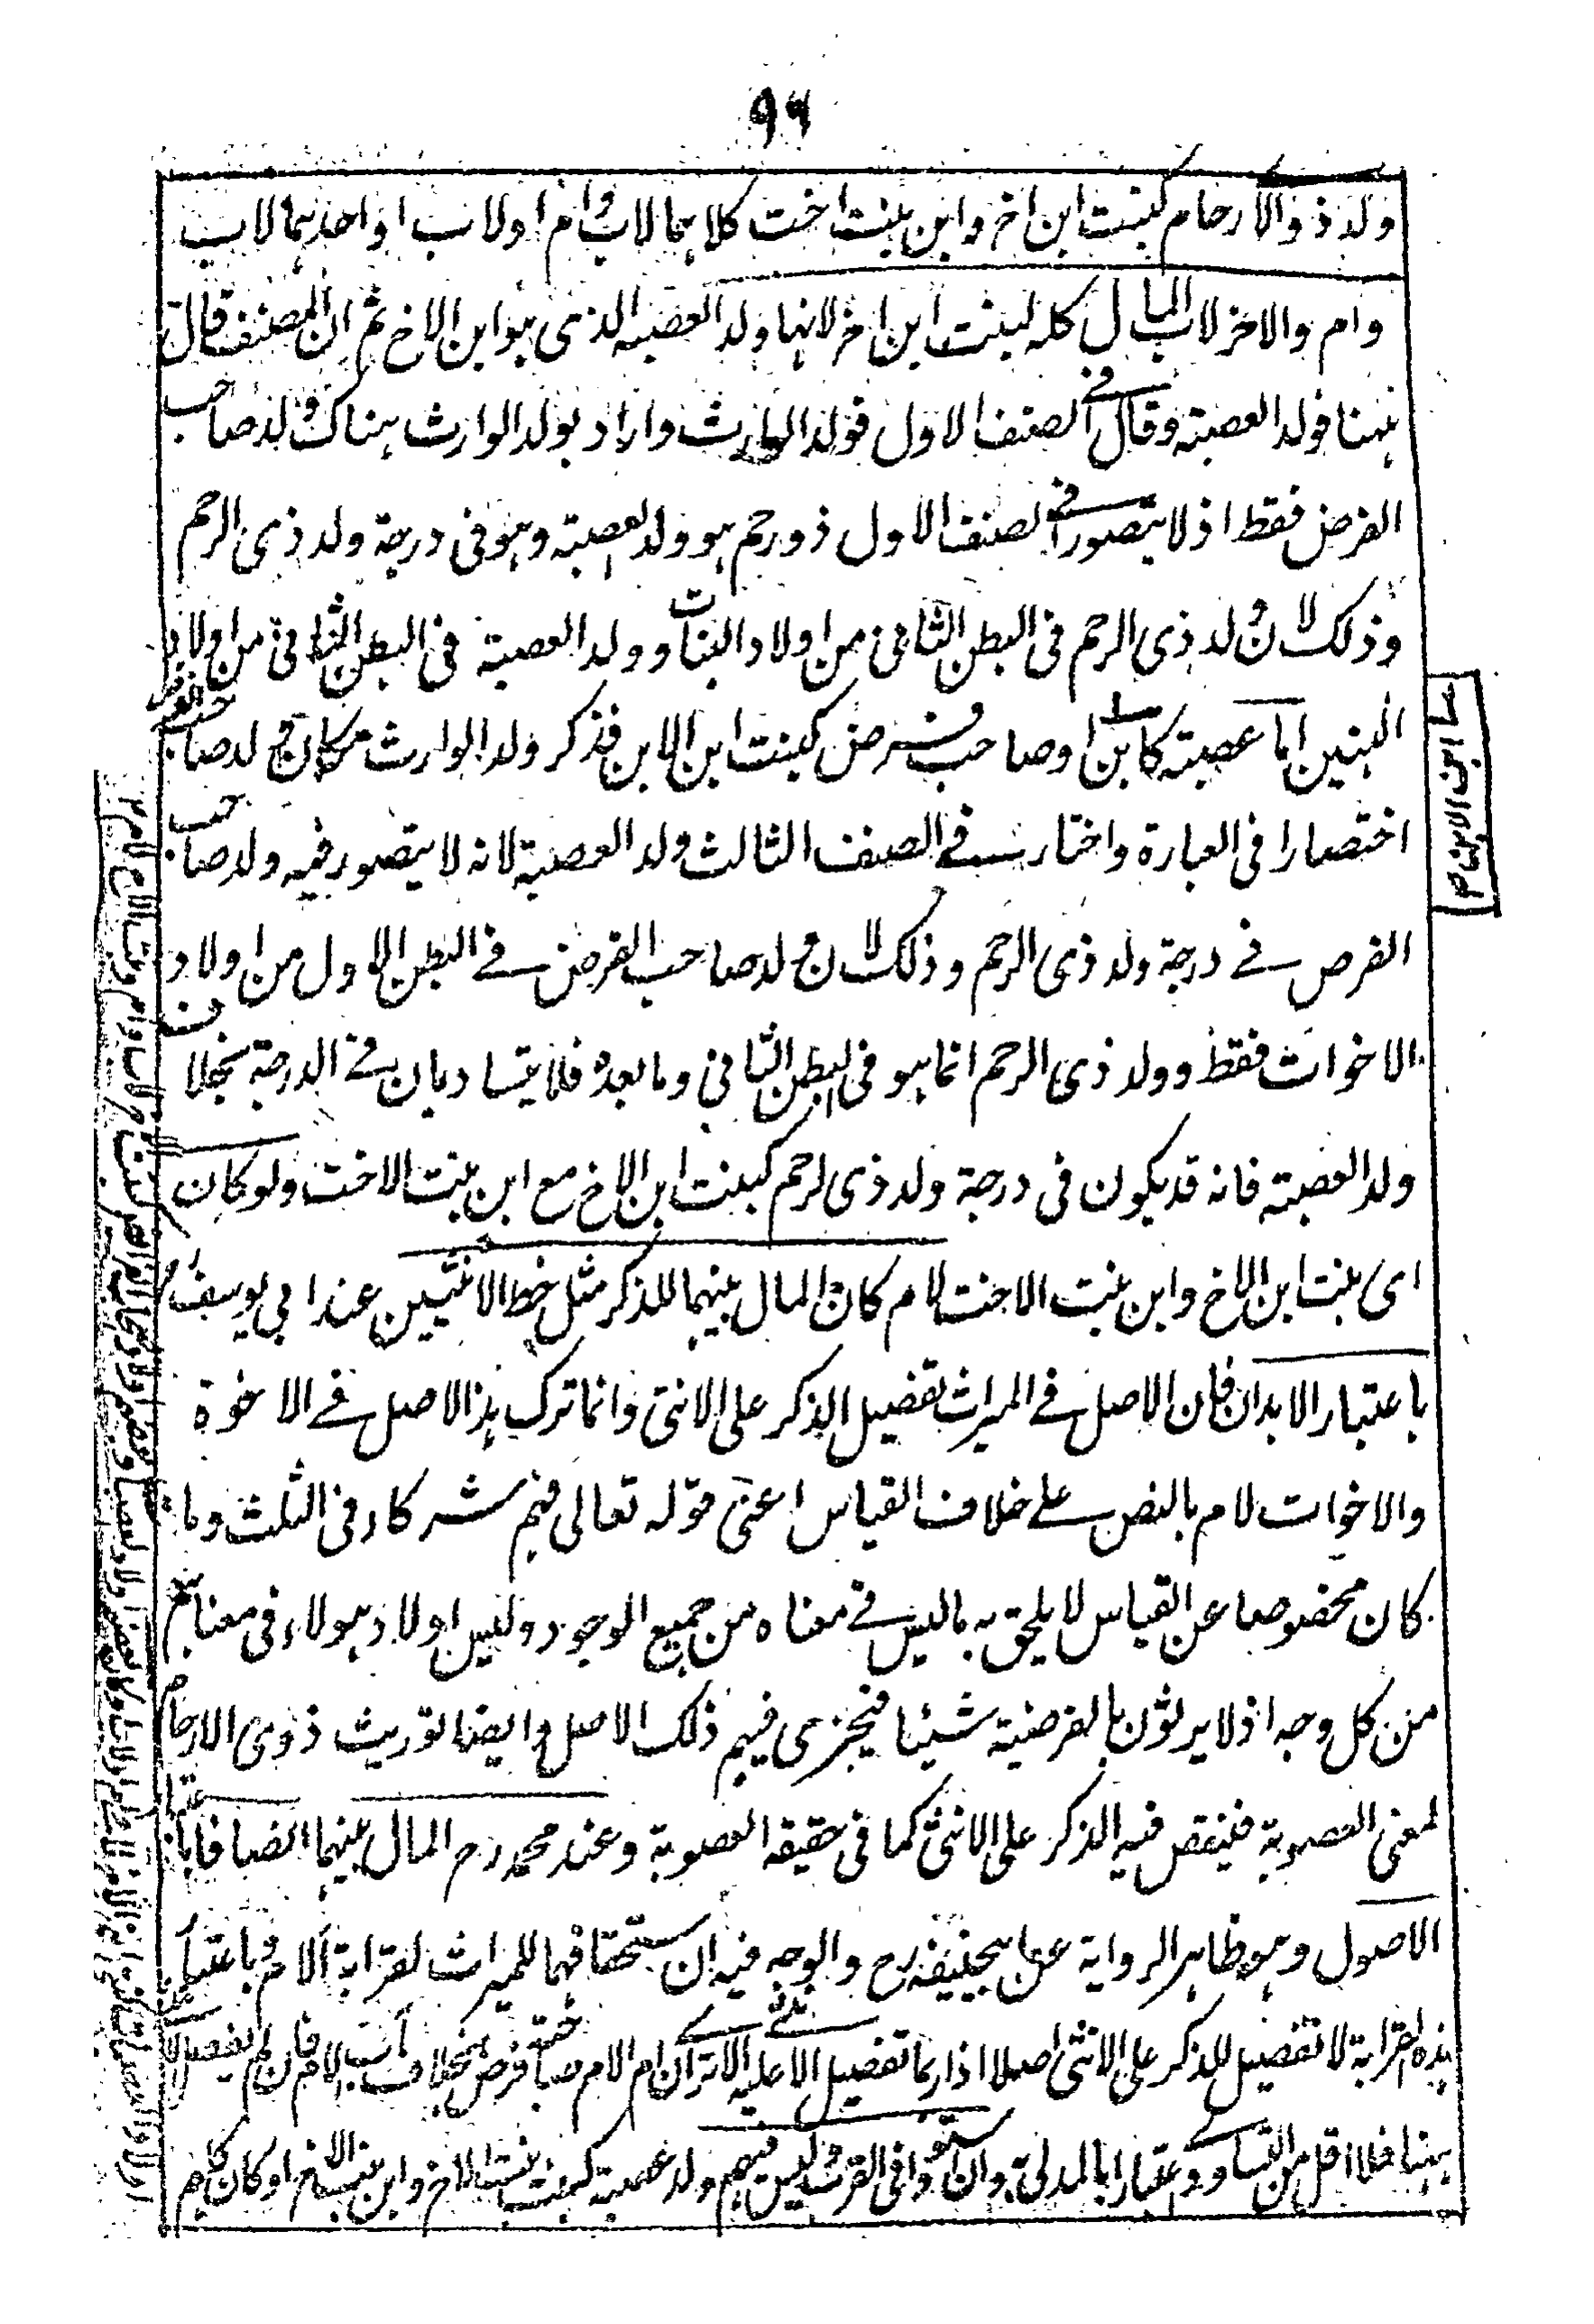 ٩٦
ولد ذوالارحام كبنت ابن اخ وابن بنت اخت كلاهما لاب وام او لاب او احدهما لاب
وام والاخر لاب المال كله لبنت ابن اخ لانها ولد العصبه الذى هو ابن الاخ ثم ان المصنف قال
ههنا فولد العصبة وقال فى الصنف الاول فولد الوارث واراد بولد الوارث هناك ولد صاحب
الفرض فقط اذ لا يتصور فى الصنف الاول ذو رحم هو ولد العصبة وهو فى درجة ولد ذى الرحم
وذلك لان ولد ذى الرحم فى البطن الثانى من اولاد البنات وولد العصبة فى البطن الثانى من اولاد
البنين اما عصبة كابن او صاحب فرض كبنت ابن الابن فذكر ولد الوارث مكان ولد صاحب الفرض
اختصارا فى العبارة واختار فى الصنف الثالث ولد العصبة لانه لا يتصور فيه ولد صاحب
الفرض فى درجة ولد ذى الرحم وذلك لان ولد صاحب الفرض فى البطن الاول من اولاد
الاخوات فقط وولد ذى الرحم انما هو فى البطن الثانى وما بعده فلا يتساويان فى الدرجة بخلاف
ولد العصبة فانه قد يكون فى درجة ولد ذى الرحم كبنت ابن الاخ مع ابن بنت الاخت ولو كان
اى بنت ابن الاخ وابن بنت الاخت لام كان المال بينهما للذكر مثل حظ الانثيين عند ابى يوسف رح
باعتبار الابدان فان الاصل فى الميراث تفضيل الذكر على الانثى وانما ترك هذا الاصل فى الاخوة
والاخوات لام بالنص على خلاف القياس اعنى قوله تعالى فهم شركاء فى الثلث وما
كان مخصوصا عن القياس لا يلحق به ما ليس فى معناه من جميع الوجوه وليس اولاد هولاء فى معناهم
من كل وجه اذ لا يرثون بالفرضية شيئا فيجرى فيهم ذلك الاصل وايضا توريث ذوى الارحام
لمعنى العصوبة فيفضل فيه الذكر على الانثى كما فى حقيقه العصوبة وعند محمد رح المال بينهما انصافا باعتبار
الاصول وهو ظاهر الرواية عن ابيحنيفة رح والوجه فيه ان استحقاقهما للميراث لقرابة الام وباعتبار
هذه القرابة لا تفضيل للذكر على الانثى اصلا اذ ربما تفضيل الانثى عليه الا ترى ان ام الام صاحبة فرض بخلاف اب الام فان لم يفضل الانثى
ههنا فلا اقل من التساوى اعتبارا بالمدلى به وان استووا فى القرب وليس فيهم ولد عصبة كبنت بنت الاخ وابن بنت الاخ او كان كلهم